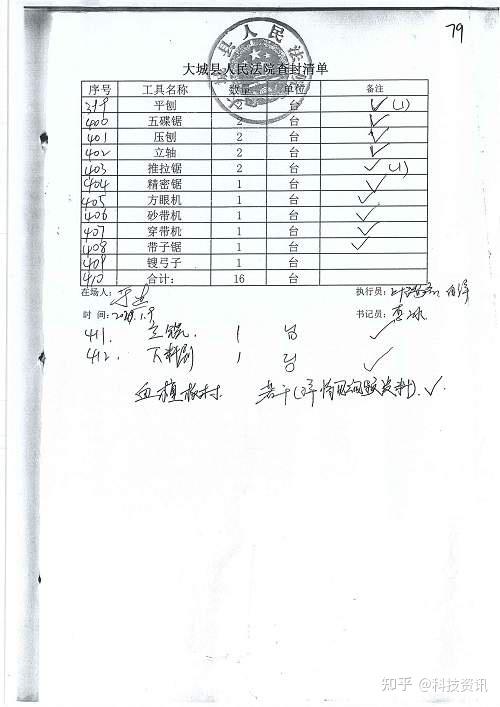 79
大城县人民法院
大城县人民法院查封清单
序号 工具名称 数量 单位 备注
399 平刨 2 台 ✓(1)
400 五碟锯 2 台 ✓
401 压刨 2 台 ✓
402 立轴 2 台 ✓
403 推拉锯 2 台 ✓(1)
404 精密锯 1 台 ✓
405 方眼机 1 台 ✓
406 砂带机 1 台 ✓
407 穿带机 1 台 ✓
408 带子锯 1 台 ✓
409 锼弓子 1 台
410 合计: 16 台
在场人: 执行员:
时 间: 书记员:
411. 1 台 ✓
412. 下料剧 1 台 ✓
血檀板材 若干 ✓
知乎 @科技资讯